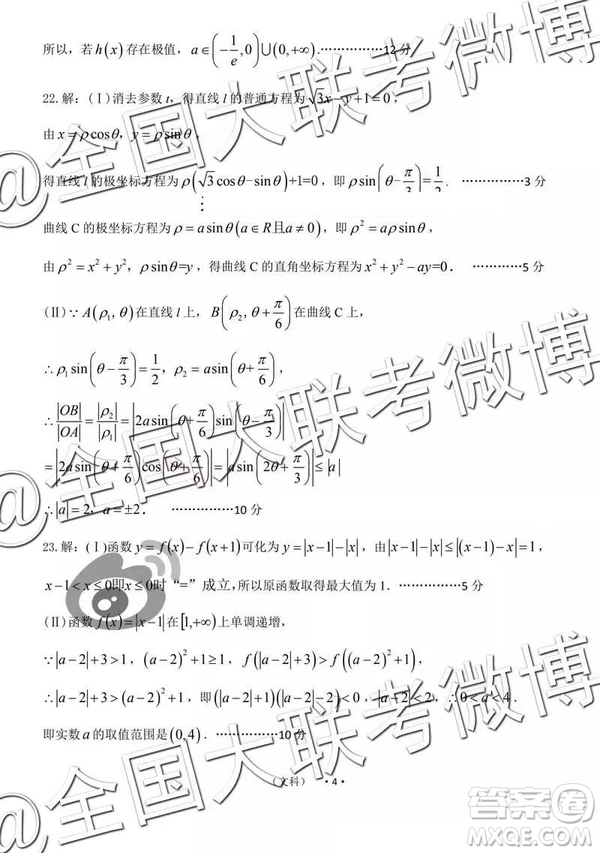 所以，若h(x)存在极值，a∈(-1/e,0)∪(0,+∞).……………12分
22.解：(Ⅰ)消去参数t，得直线l的普通方程为√3x-y+1=0，
由x=ρcosθ，y=ρsinθ，
得直线l的极坐标方程为ρ(√3cosθ-sinθ)+1=0，即ρsin(θ-π/3)=1/2. …………3分
⋮
曲线C的极坐标方程为ρ=asinθ(a∈R且a≠0)，即ρ²=aρsinθ，
由ρ²=x²+y²，ρsinθ=y，得曲线C的直角坐标方程为x²+y²-ay=0. …………5分
(Ⅱ)∵A(ρ₁,θ)在直线l上，B(ρ₂,θ+π/6)在曲线C上，
∴ρ₁sin(θ-π/3)=1/2，ρ₂=asin(θ+π/6)，
∴|OB|/|OA|=|ρ₂|/|ρ₁|=|2asin(θ+π/6)sin(θ-π/3)|
=|2asin(θ+π/6)cos(θ+π/6)|=|asin(2θ+π/3)|≤|a|
∴|a|=2，a=±2. ……………10分
23.解：(Ⅰ)函数y=f(x)-f(x+1)可化为y=|x-1|-|x|，由|x-1|-|x|≤|x-1-x|=1，
x-1<x≤0即x≤0时“=”成立，所以原函数取得最大值为1.……………5分
(Ⅱ)函数f(x)=|x-1|在[1,+∞)上单调递增，
∵|a-2|+3>1，(a-2)²+1≥1，f(|a-2|+3)>f((a-2)²+1)，
∴|a-2|+3>(a-2)²+1，即(|a-2|+1)(|a-2|-2)<0，∴|a-2|<2，∴0<a<4.
即实数a的取值范围是(0,4).……………10分
（文科） •4•
@全国大联考微博
@全国大联考微博
@全国大联考微博
答案卷
MXQE.COM